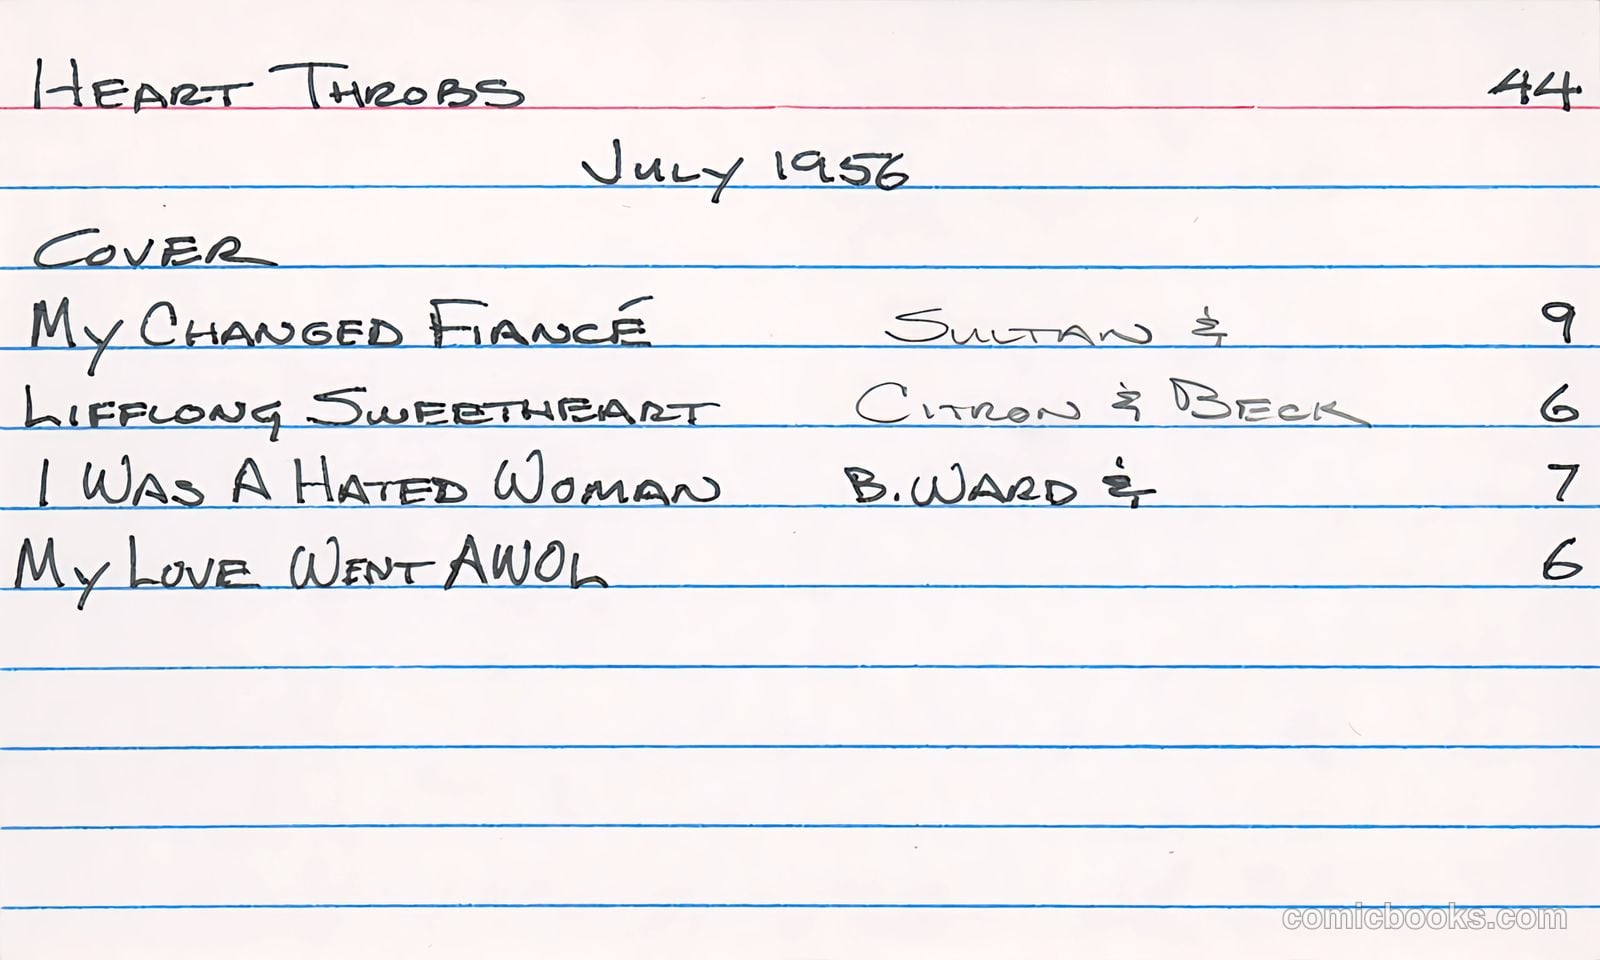 HEART THROBS 44
JULY 1956
COVER
MY CHANGED FIANCÉ SULTAN & 9
LIFFLONG SWEETHEART CITRON & BECK 6
I WAS A HATED WOMAN B. WARD & 7
MY LOVE WENT AWOL 6
comicbooks.com